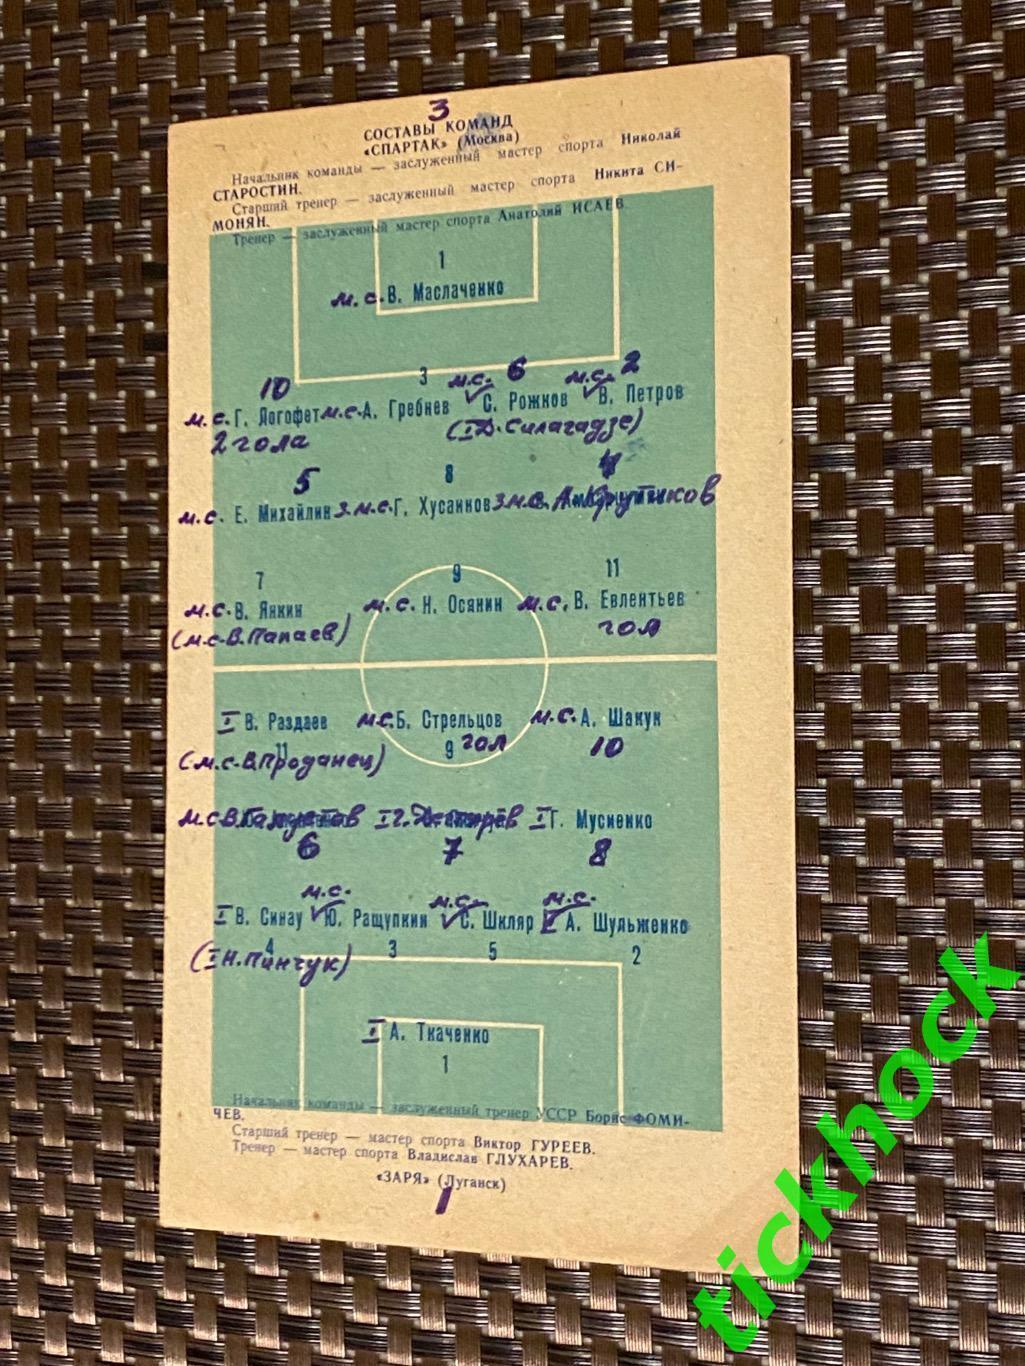 3
СОСТАВЫ КОМАНД
«СПАРТАК» (Москва)
Начальник команды — заслуженный мастер спорта Николай
СТАРОСТИН.
Старший тренер — заслуженный мастер спорта Никита СИ-
МОНЯН.
Тренер — заслуженный мастер спорта Анатолий ИСАЕВ.
1
м.с. В. Маслаченко
10 3 м.с. 6 м.с. 2
м.с. Г. Логофет м.с. А. Гребнев С. Рожков В. Петров
2 гола (I Д. Силагадзе)
5 8 4
м.с. Е. Михайлин з.м.с. Г. Хусаинов з.м.с. А. Крутиков
7 9 11
м.с. В. Янкин м.с. Н. Осянин м.с. В. Евлентьев
(м.с. В. Папаев) гол
I В. Раздаев м.с. Б. Стрельцов м.с. А. Шакун
(м.с. В. Проданец) 11 9 гол 10
м.с. В. I Г. I Г. Мусиенко
6 7 8
м.с. м.с. м.с.
I В. Синау Ю. Ращупкин С. Шкляр А. Шульженко
(I Н. Пинчук) 4 3 5 2
I А. Ткаченко
1
Начальник команды — заслуженный тренер УССР Борис ФОМИ-
ЧЕВ.
Старший тренер — мастер спорта Виктор ГУРЕЕВ.
Тренер — мастер спорта Владислав ГЛУХАРЕВ.
«ЗАРЯ» (Луганск)
1
tickhock